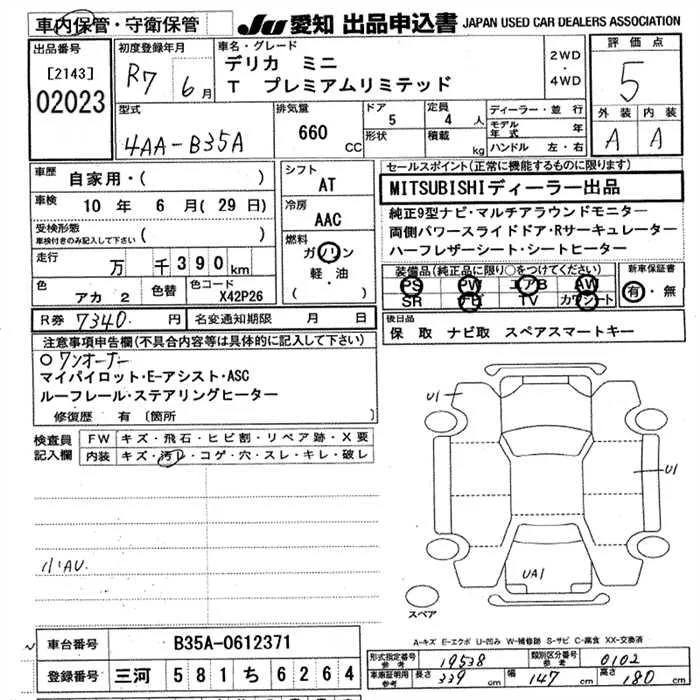 車内保管・守衛保管
JU 愛知 出品申込書 JAPAN USED CAR DEALERS ASSOCIATION
出品番号
[2143]
02023
初度登録年月
R7 6月
車名・グレード
デリカ ミニ
T プレミアムリミテッド
2WD
・
4WD
評価点
5
外装 内装
A A
型式
4AA-B35A
排気量
660 CC
ドア
5
形状
定員
4 人
積載
kg
ディーラー・並 行
モデル年式 年
ハンドル 左・右
車歴 自家用・( )
車検 10 年 6 月 (29 日)
受検形態
車検付きのみ記入して下さい ( )
走行 万 千 390 km
色 アカ 2
色替
色コード X42P26
シフト
AT
冷房
AAC
燃料
ガソリン
軽・油
( )
セールスポイント(正常に機能するものに限ります)
MITSUBISHIディーラー出品
純正9型ナビ・マルチアラウンドモニター
両側パワースライドドア・Rサーキュレーター
ハーフレザーシート・シートヒーター
装備品(純正品に限り○をつけてください)
PS PW エアB AW
SR ナビ TV カワシート
新車保証書
有・無
R券 7340. 円 名変通知期限 月 日
後日品
保 取 ナビ取 スペアスマートキー
注意事項申告欄(不具合内容等は具体的に記入して下さい)
○ワンオーナー
マイパイロット・E-アシスト・ASC
ルーフレール・ステアリングヒーター
修復歴 有 〔箇所
検査員記入欄
FW キズ・飛石・ヒビ割・リペア跡・X要
内装 キズ・汚レ・コゲ・穴・スレ・キレ・破レ
小キAU.
U1
U1
UA1
スペア
A-キズ E-エクボ U-凹み W-補修跡 S-サビ C-腐食 XX-交換済
車台番号 B35A-0612371
登録番号 三河 581 ち 6264
形式指定番号 参考 19538 類別区分番号 参考 0102
車庫証明用 参考 長さ 339 cm 幅 147 cm 高さ 180 cm